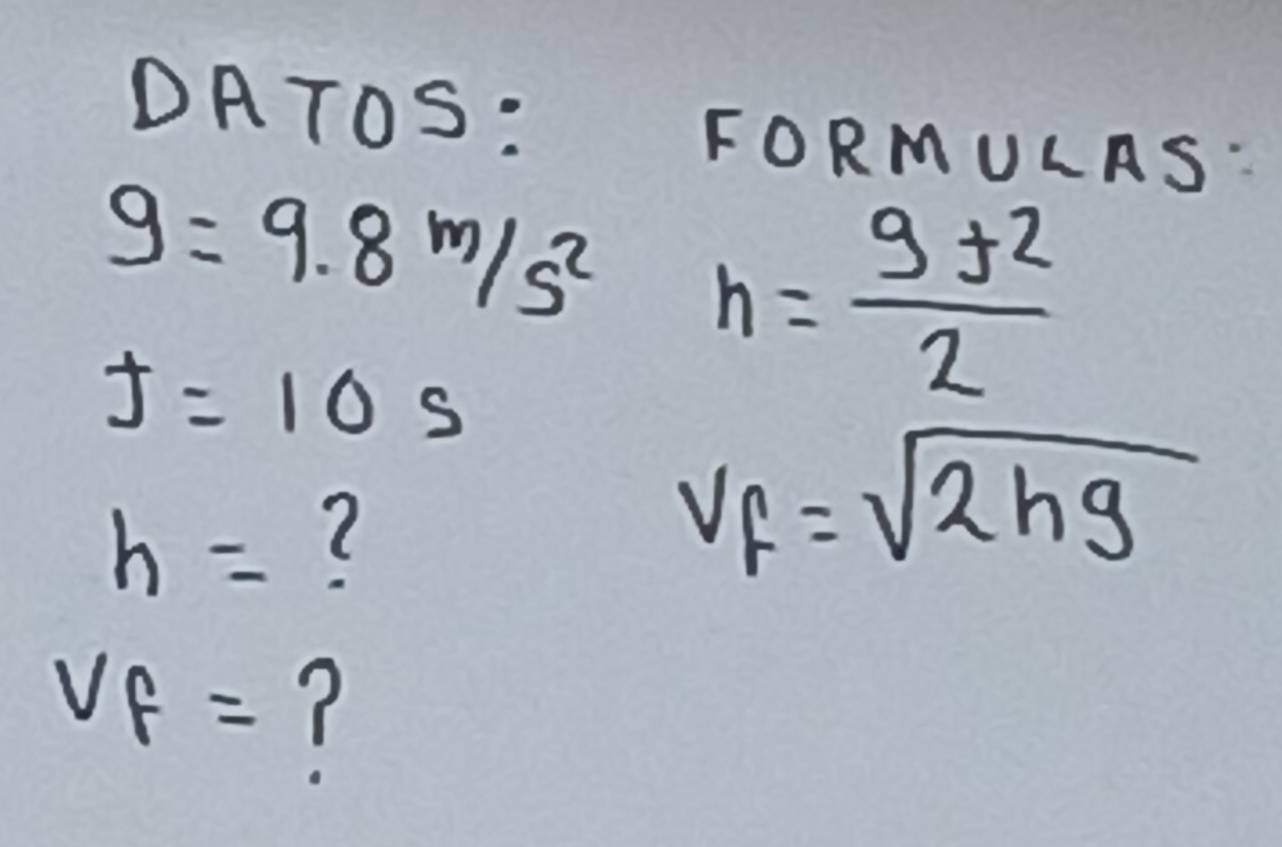 DATOS:
g = 9.8 m/s²
t = 10 s
h = ?
Vf = ?
FORMULAS:
h = gt2/2
Vf = √2hg